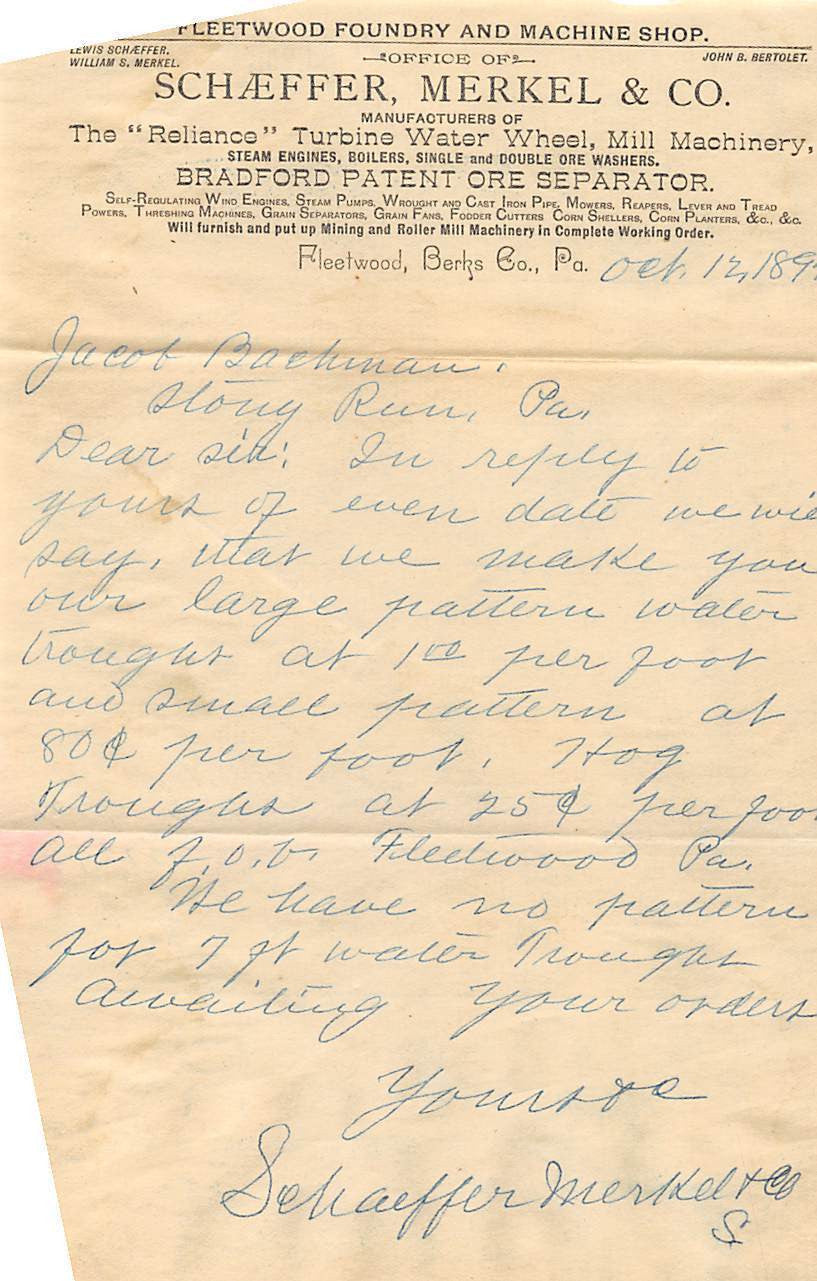 FLEETWOOD FOUNDRY AND MACHINE SHOP.
LEWIS SCHÆFFER.
WILLIAM S. MERKEL.
OFFICE OF
JOHN B. BERTOLET.
SCHÆFFER, MERKEL & CO.
MANUFACTURERS OF
The "Reliance" Turbine Water Wheel, Mill Machinery,
STEAM ENGINES, BOILERS, SINGLE and DOUBLE ORE WASHERS.
BRADFORD PATENT ORE SEPARATOR.
SELF-REGULATING WIND ENGINES, STEAM PUMPS, WROUGHT AND CAST IRON PIPE, MOWERS, REAPERS, LEVER AND TREAD
POWERS, THRESHING MACHINES, GRAIN SEPARATORS, GRAIN FANS, FODDER CUTTERS CORN SHELLERS, CORN PLANTERS, &c., &c.
Will furnish and put up Mining and Roller Mill Machinery in Complete Working Order.
Fleetwood, Berks Co., Pa. Oct. 12, 189
Jacob Bachman.
Stony Run, Pa.
Dear sir: In reply to
yours of even date we
say, that we make you
our large pattern water
troughs at 1 00 per foot
and small pattern at
80¢ per foot. Hog
Troughs at 25¢ per foot
all f.o.b. Fleetwood Pa.
We have no pattern
for 7 ft water Troughs
Awaiting Your orders
Yours &c
Schaeffer Merkel & Co
S